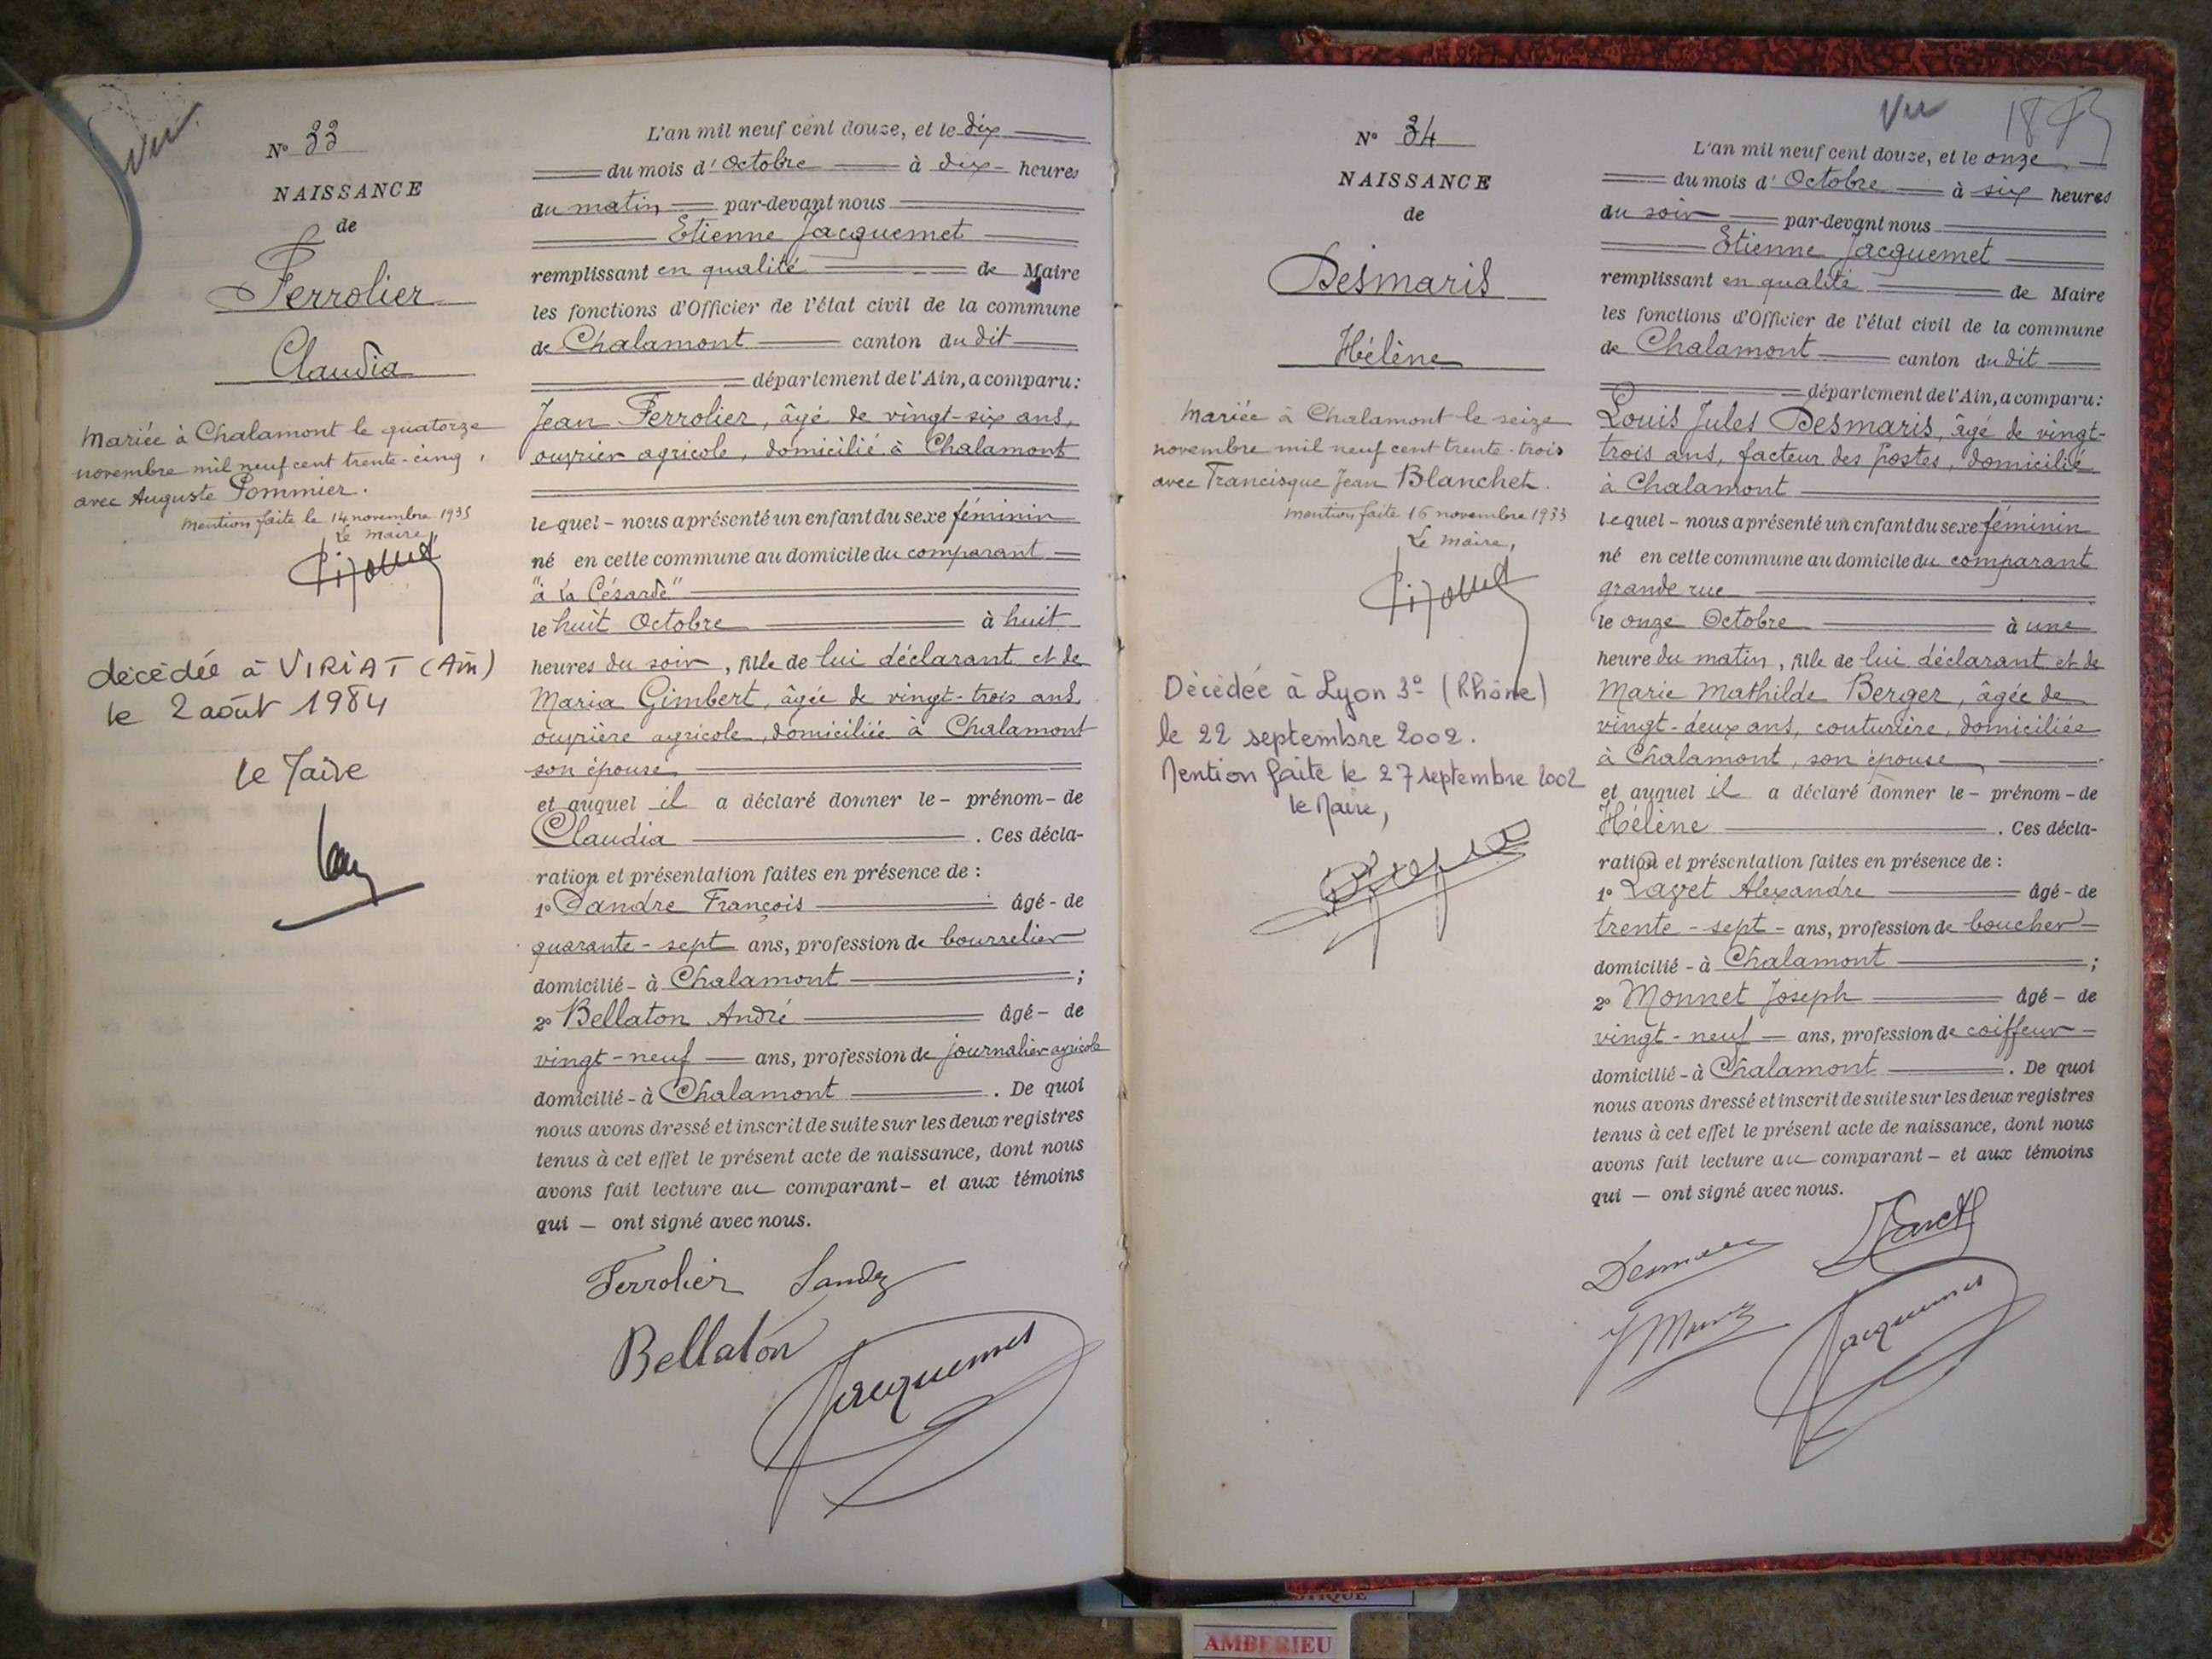 Vu
N° 33
NAISSANCE
de
Ferrolier
Claudia
Mariée à Chalamont le quatorze
novembre mil neuf cent trente-cinq,
avec Auguste Pommier.
Mention faite le 14 novembre 1935
Le Maire,
décédée à VIRIAT (Ain)
le 2 août 1984
le Maire
L'an mil neuf cent douze, et le dix
du mois d'Octobre à dix heures
du matin par-devant nous
Etienne Jacquemet
remplissant en qualité de Maire
les fonctions d'Officier de l'état civil de la commune
de Chalamont canton du dit
département de l'Ain, a comparu:
Jean Ferrolier, âgé de vingt-six ans,
ouvrier agricole, domicilié à Chalamont
lequel - nous a présenté un enfant du sexe féminin
né en cette commune au domicile du comparant
"à la Césarde"
le huit Octobre à huit
heures du soir, fille de lui déclarant et de
Maria Gimbert, âgée de vingt-trois ans,
ouvrière agricole, domiciliée à Chalamont
son épouse,
et auquel il a déclaré donner le - prénom - de
Claudia . Ces décla-
ration et présentation faites en présence de :
1° Sandre François âgé - de
quarante-sept ans, profession de bourrelier
domicilié - à Chalamont ;
2° Bellaton André âgé - de
vingt-neuf ans, profession de journalier agricole
domicilié - à Chalamont . De quoi
nous avons dressé et inscrit de suite sur les deux registres
tenus à cet effet le présent acte de naissance, dont nous
avons fait lecture au comparant - et aux témoins
qui - ont signé avec nous.
Ferrolier Sandre
Bellaton
Jacquemet
Vu
N° 34
NAISSANCE
de
Desmaris
Hélène
Mariée à Chalamont le seize
novembre mil neuf cent trente-trois
avec Francisque Jean Blanchet.
Mention faite 16 novembre 1933
Le Maire,
Décédée à Lyon 3° (Rhône)
le 22 septembre 2002.
Mention faite le 27 septembre 2002
le Maire,
L'an mil neuf cent douze, et le onze
du mois d'Octobre à six heures
du soir par-devant nous
Etienne Jacquemet
remplissant en qualité de Maire
les fonctions d'Officier de l'état civil de la commune
de Chalamont canton du dit
département de l'Ain, a comparu:
Louis Jules Desmaris, âgé de vingt-
trois ans, facteur des postes, domicilié
à Chalamont
lequel - nous a présenté un enfant du sexe féminin
né en cette commune au domicile du comparant
grande rue
le onze Octobre à une
heure du matin, fille de lui déclarant et de
Marie Mathilde Berger, âgée de
vingt-deux ans, couturière, domiciliée
à Chalamont, son épouse
et auquel il a déclaré donner le - prénom - de
Hélène . Ces décla-
ration et présentation faites en présence de :
1° Alexandre âgé - de
trente-sept - ans, profession de boucher
domicilié - à Chalamont ;
2° Monnet Joseph âgé - de
vingt-neuf ans, profession de coiffeur
domicilié - à Chalamont . De quoi
nous avons dressé et inscrit de suite sur les deux registres
tenus à cet effet le présent acte de naissance, dont nous
avons fait lecture au comparant - et aux témoins
qui - ont signé avec nous.
Jacquemet
AMBERIEU